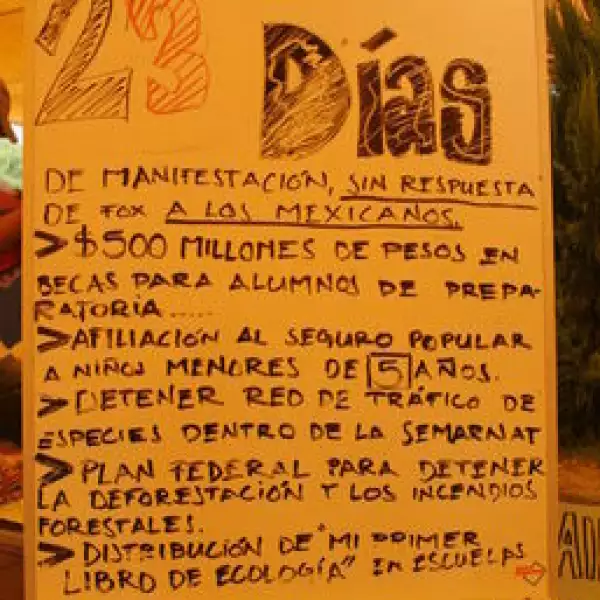 23 Días
DE MANIFESTACIÓN, SIN RESPUESTA
DE FOX A LOS MEXICANOS.
> $500 MILLONES DE PESOS EN
BECAS PARA ALUMNOS DE PREPA-
RATORIA.....
> AFILIACIÓN AL SEGURO POPULAR
A NIÑOS MENORES DE 5 AÑOS.
> DETENER RED DE TRÁFICO DE
ESPECIES DENTRO DE LA SEMARNAT
> PLAN FEDERAL PARA DETENER
LA DEFORESTACIÓN Y LOS INCENDIOS
FORESTALES.
> DISTRIBUCIÓN DE "MI PRIMER
LIBRO DE ECOLOGÍA" EN ESCUELAS